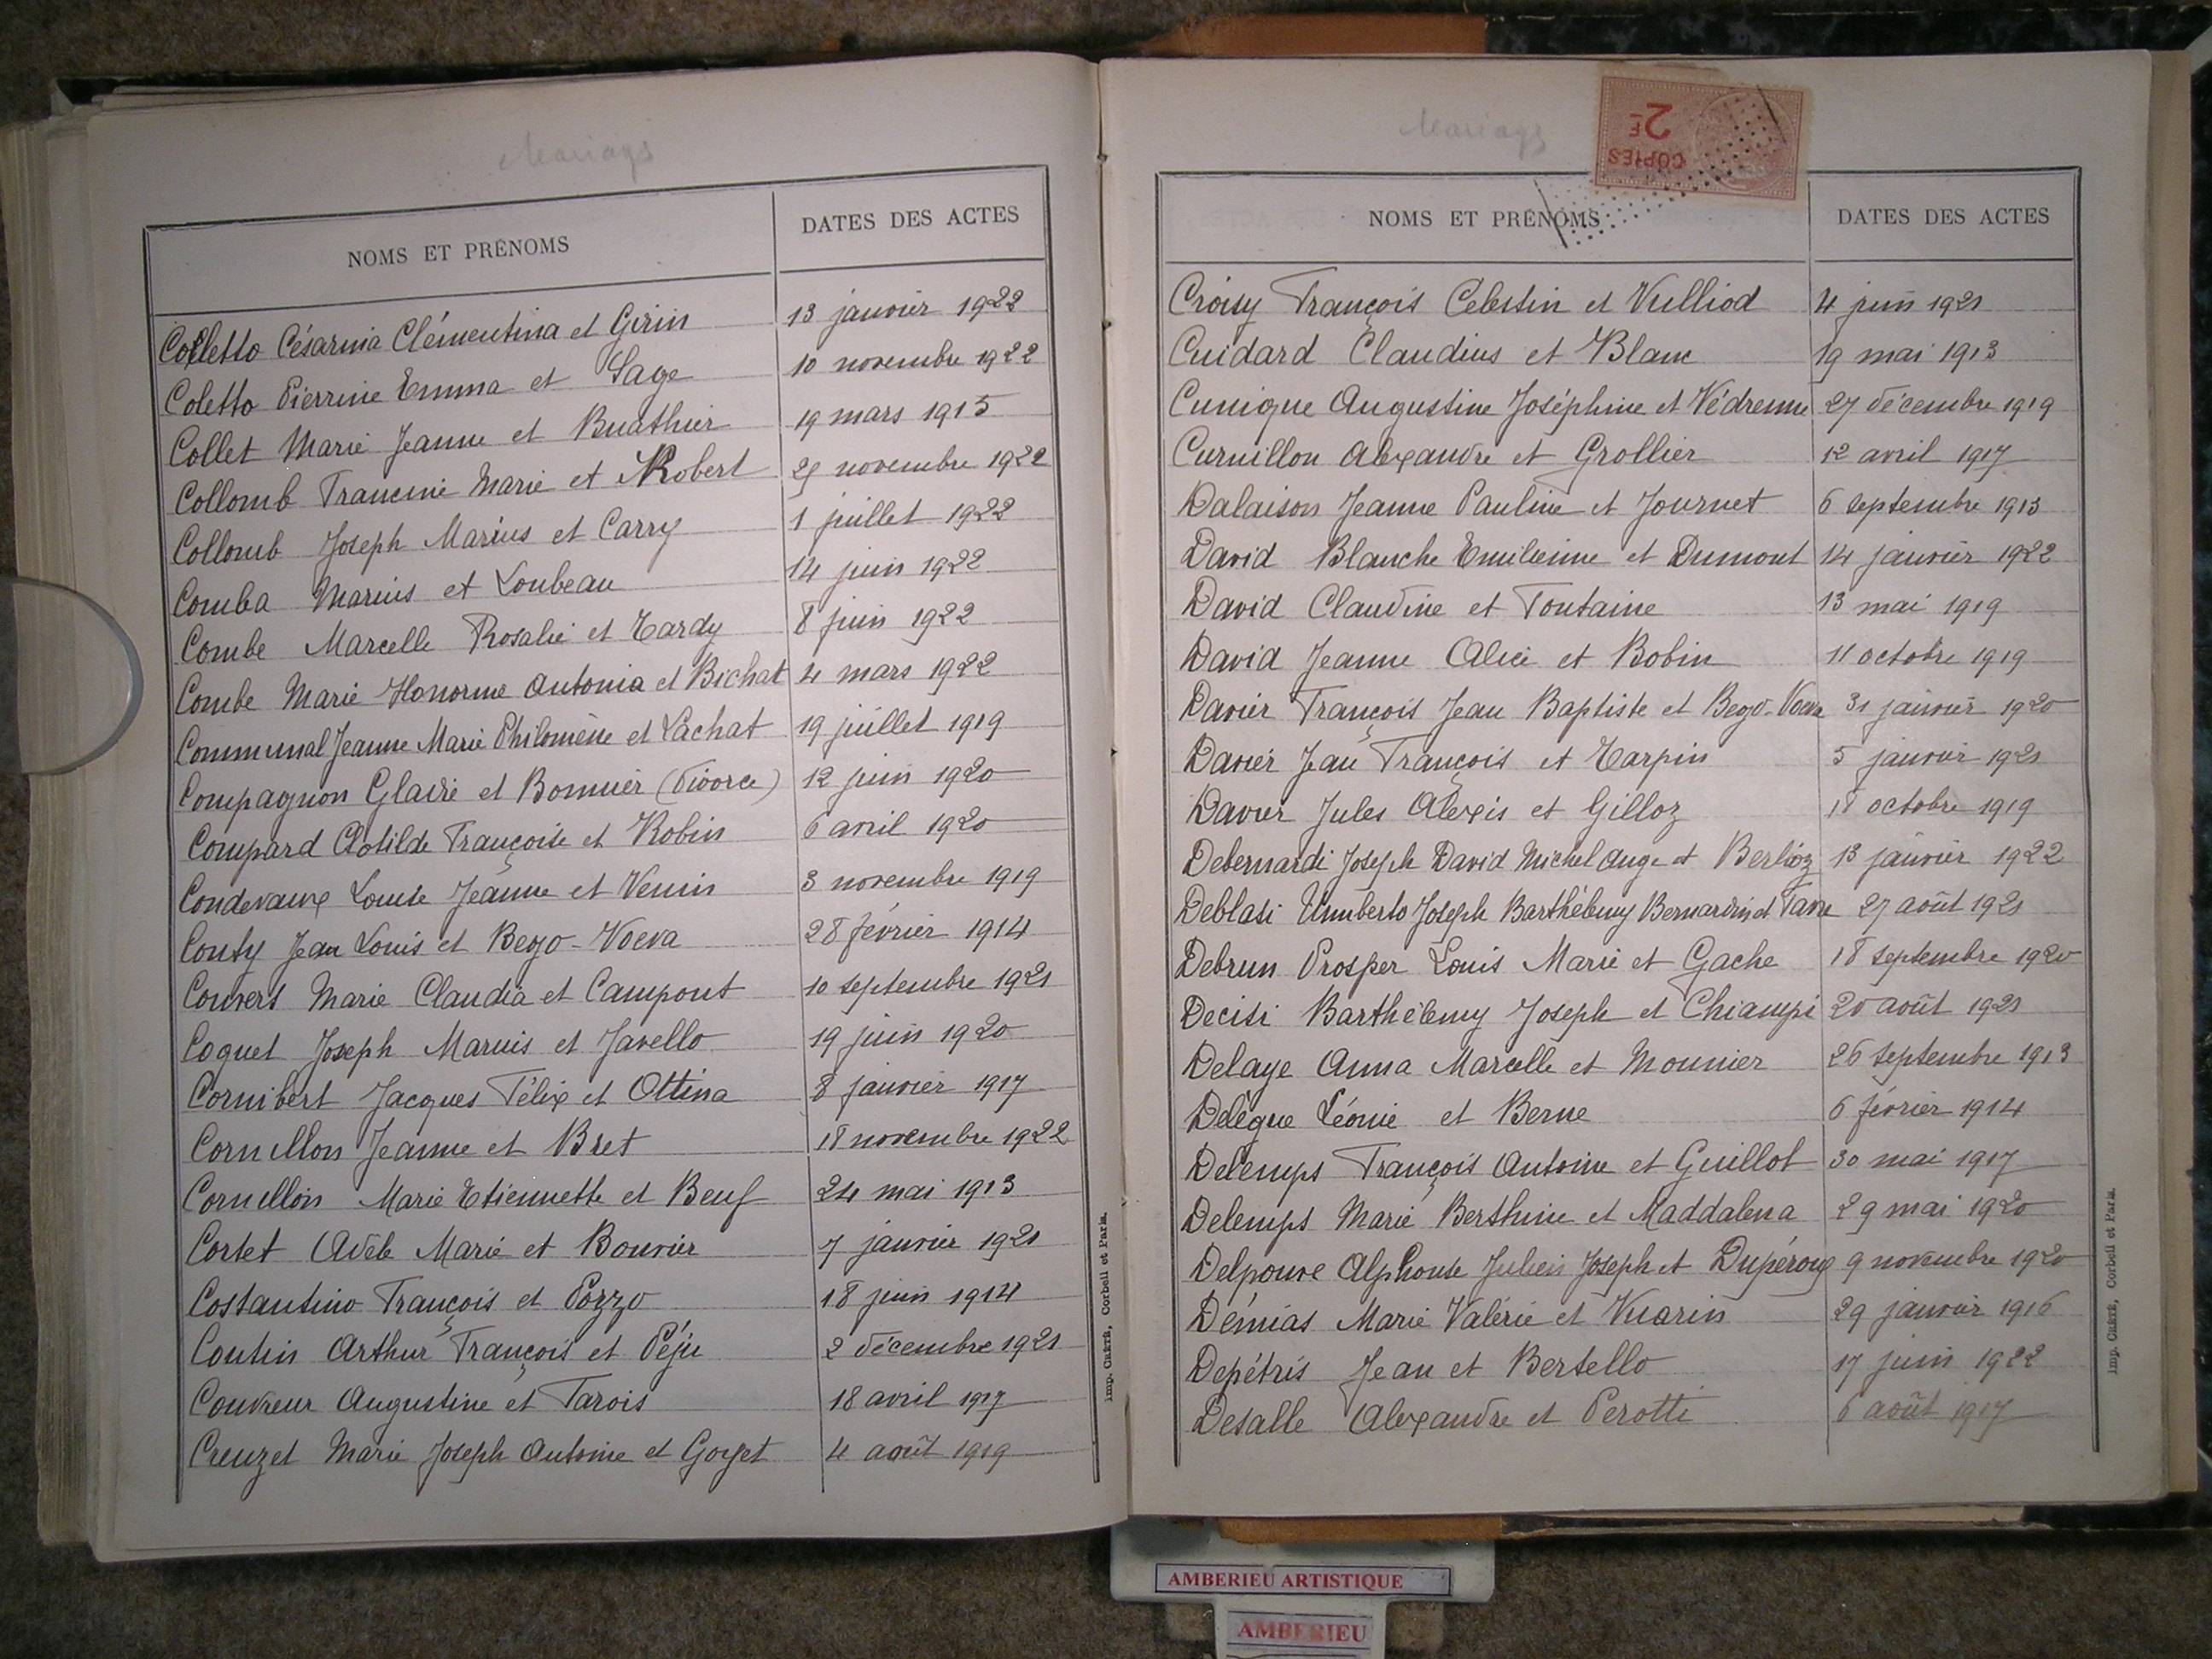 Mariages
NOMS ET PRÉNOMS
DATES DES ACTES
Colletto Césarnia Clémentina et Girin 13 janvier 1922
Coletto Pierrine Emma et Sage 10 novembre 1922
Collet Marie Jeanne et Buathier 19 mars 1915
Collomb Francine Marie et Robert 25 novembre 1922
Collomb Joseph Marius et Carry 1 juillet 1922
Comba Marius et Loubeau 14 juin 1922
Combe Marcelle Rosalie et Tardy 8 juin 1922
Combe Marie Honorine Antonia et Bichat 4 mars 1922
Communal Jeanne Marie Philomène et Lachat 19 juillet 1919
Compagnon Gladie et Bonnier (Divorce) 12 juin 1920
Compard Clotilde Françoise et Robin 6 avril 1920
Condevaux Louise Jeanne et Venin 3 novembre 1919
Conty Jean Louis et Beyo-Voeva 28 février 1914
Convert Marie Claudia et Campont 10 septembre 1921
Coquet Joseph Marius et Javello 19 juin 1920
Cornibert Jacques Félix et Ottina 8 janvier 1917
Cornillon Jeanne et Bret 18 novembre 1922
Cornillon Marie Etiennette et Beuf 24 mai 1913
Cortet Adèle Marie et Bouvier 7 janvier 1921
Costantino François et Pozzo 18 juin 1914
Coutin Arthur François et Péju 2 décembre 1921
Couvreur Augustine et Tarois 18 avril 1917
Creuzet Marie Joseph Antoine et Goyet 4 août 1919
Imp. CRÉTÉ, Corbeil et Paris.
Mariages
COPIES
2F
NOMS ET PRÉNOMS
DATES DES ACTES
Croisy François Celestin et Vulliod 4 juin 1921
Cuidard Claudius et Blanc 19 mai 1913
Cunique Augustine Joséphine et Védrenne 27 décembre 1919
Curnillon Alexandre et Grollier 12 avril 1917
Dalaison Jeanne Pauline et Journet 6 septembre 1913
David Blanche Emilienne et Dumont 14 janvier 1922
David Claudine et Fontaine 13 mai 1919
David Jeanne Alice et Bobin 11 octobre 1919
Davier François Jean Baptiste et Beyo-Voeva 31 janvier 1920
Davier Jean François et Tarpin 5 janvier 1921
Davier Jules Alexis et Gilloz 18 octobre 1919
Debernardi Joseph David Michel Ange et Berlioz 13 janvier 1922
Deblasi Umberto Joseph Barthélemy Bernardin et Favre 27 août 1921
Debrun Prosper Louis Marie et Gache 18 septembre 1920
Decisi Barthélemy Joseph et Chiampi 20 août 1921
Delaye Anna Marcelle et Mounier 26 septembre 1913
Delègue Léonie et Berne 6 février 1914
Delemps François Antoine et Guillot 30 mai 1917
Delemps Marie Berthine et Maddalena 29 mai 1920
Delpouve Alphonse Julien Joseph et Dupéroux 9 novembre 1920
Démias Marie Valérie et Vuarin 29 janvier 1916
Depétris Jean et Bertello 17 juin 1922
Desalle Alexandre et Perotti 6 août 1917
Imp. CRÉTÉ, Corbeil et Paris.
AMBERIEU ARTISTIQUE
AMBERIEU